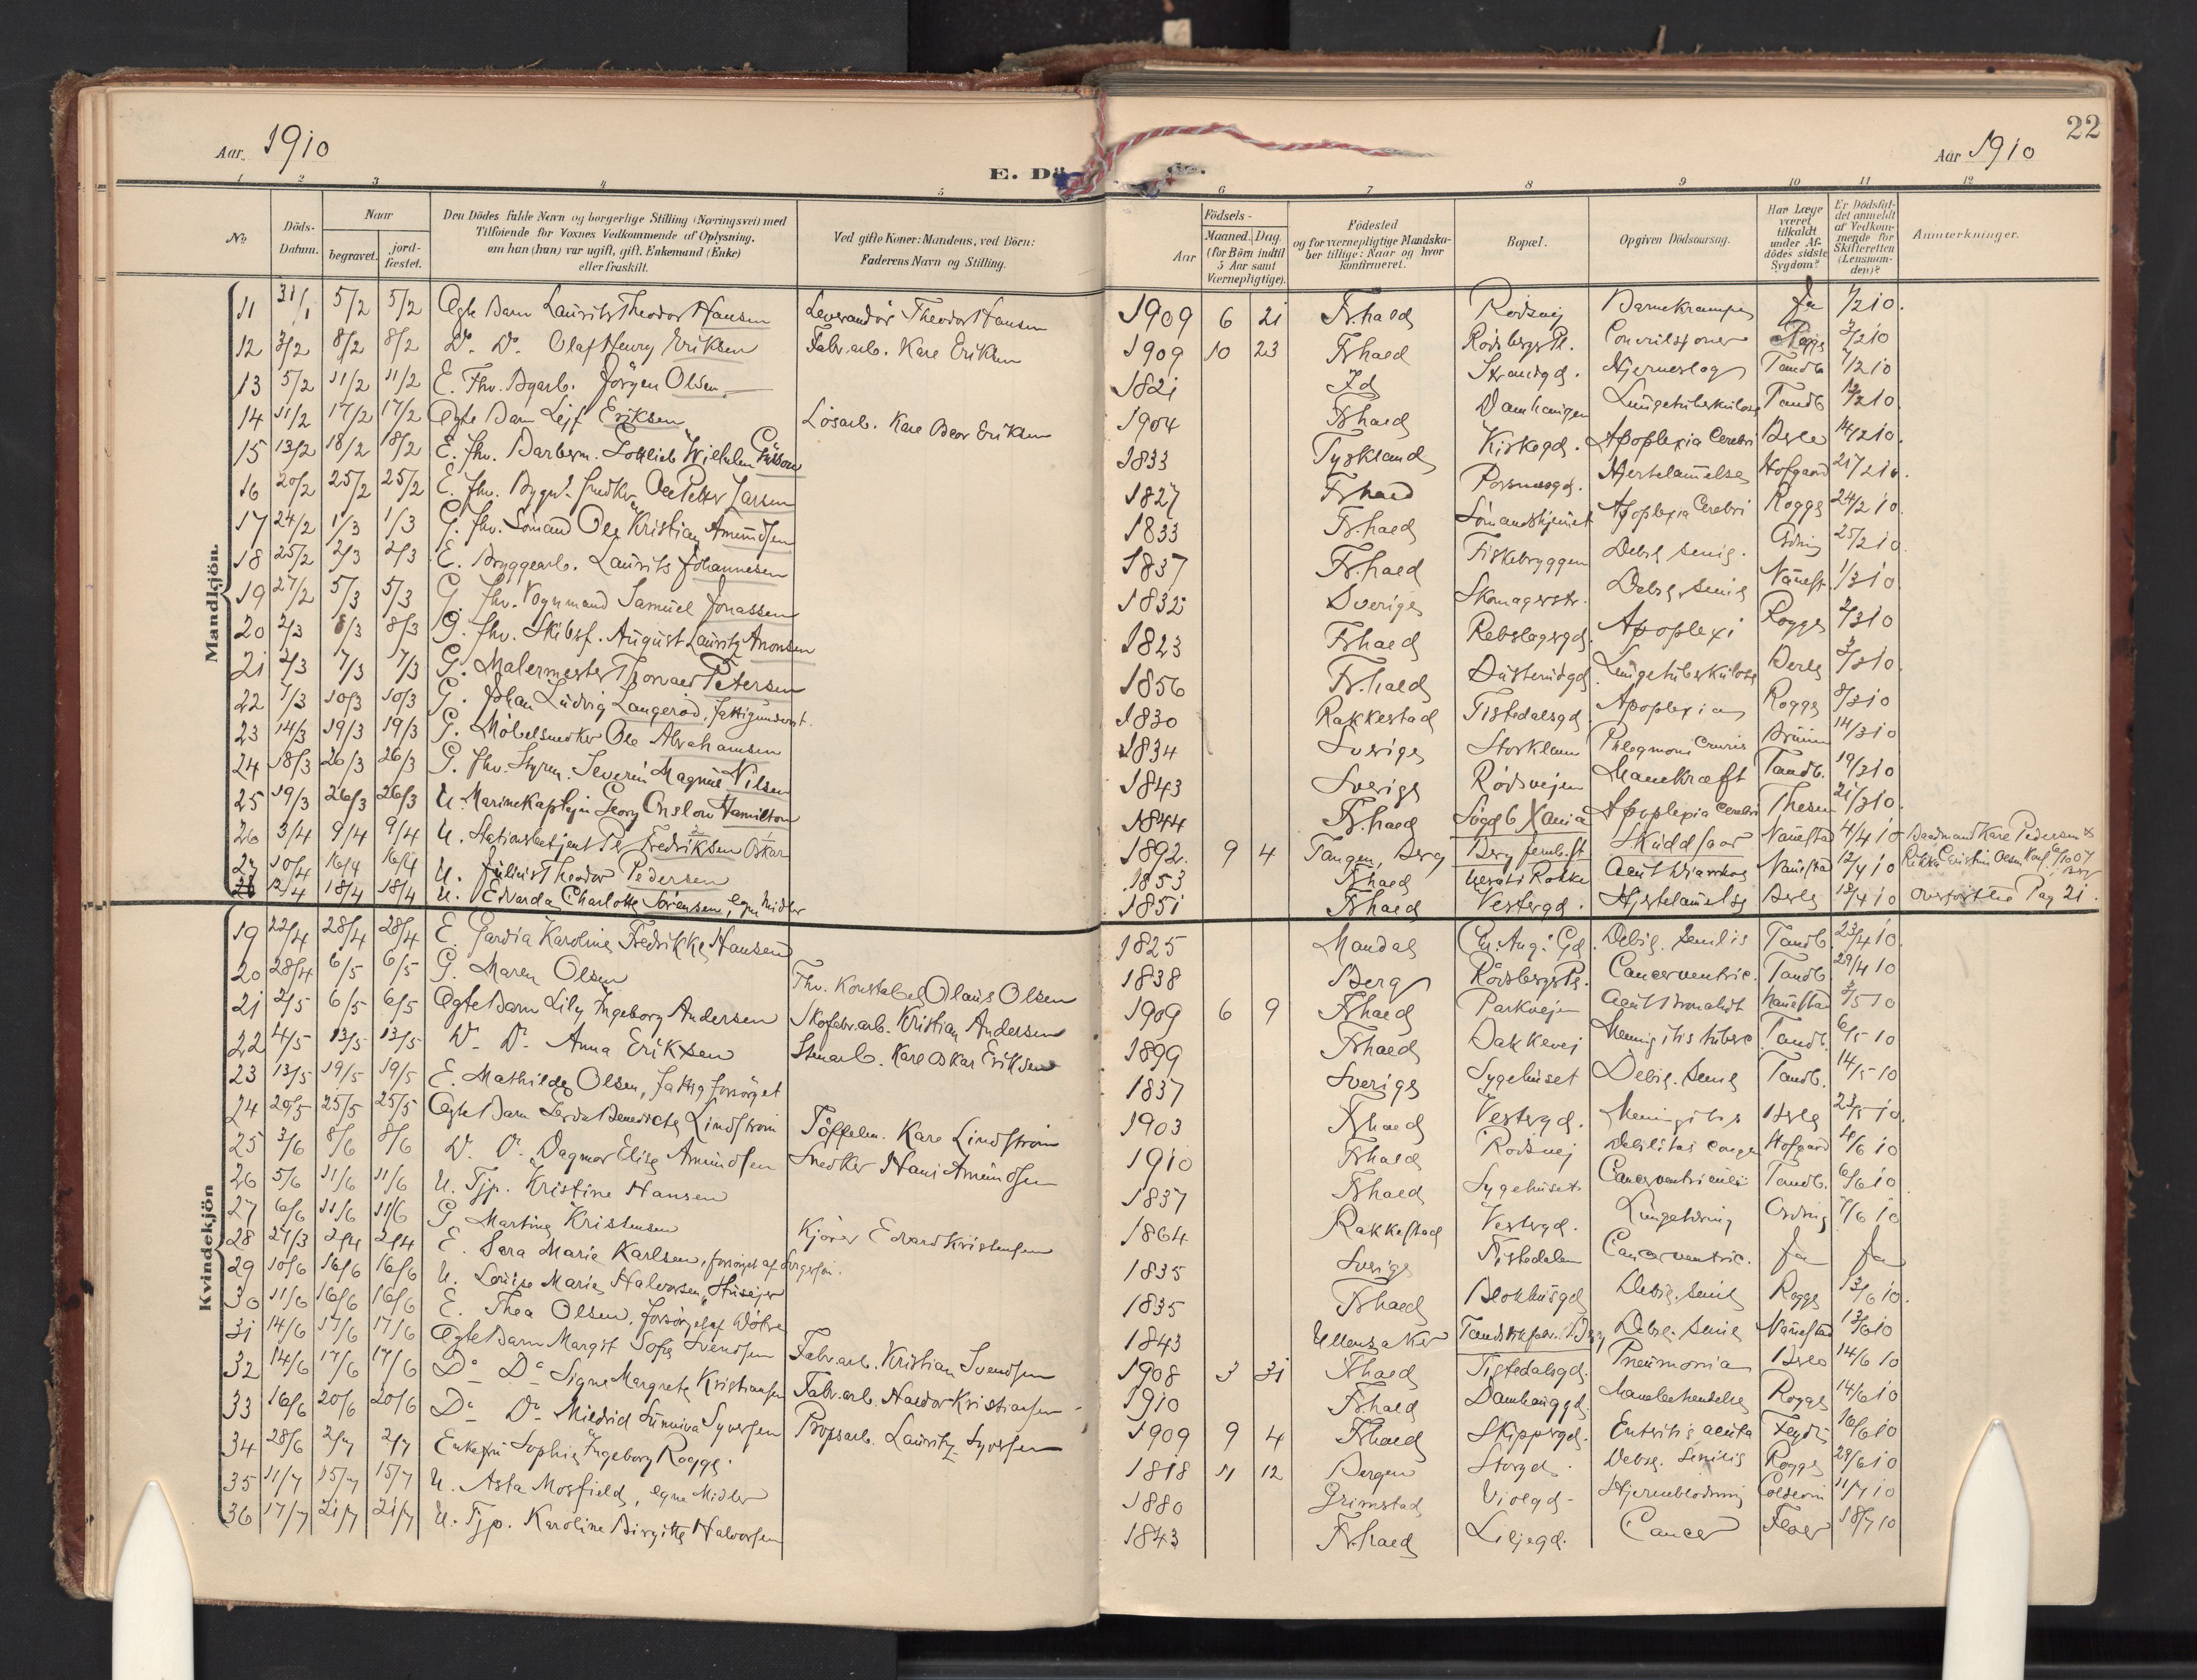 22
Aar 1910
Aar 1910
E. Dö
1 2 3 4 5 6 7 8 9 10 11 12
No
Döds-Datum.
Naar
begravet.
jord-fæstet.
Den Dödes fulde Navn og borgerlige Stilling (Næringsvei) med
Tilföiende for Voxnes Vedkommende af Oplysning,
om han (hun) var ugift, gift, Enkemand (Enke)
eller fraskilt.
Ved gifte Koner: Mandens, ved Börn:
Faderens Navn og Stilling.
Födsels-
Aar
Maaned. Dag.
(for Börn indtil
5 Aar samt
Værnepligtige).
Födested
og for værnepligtige Mandska-
ber tillige: Naar og hvor
konfirmeret.
Bopæl.
Opgiven Dödsaarsag.
Har Læge
været
tilkaldt
under Af-
dödes sidste
Sygdom?
Er Dödsfal-
det anmeldt
af Vedkom-
mende for
Skifteretten
(Lensman-
den)?
Anmærkninger.
Mandkjön.
11 31/1 5/2 5/2 Ægte Barn Laurits Theodor Hansen Leverandør Theodor Hansen 1909 6 21 Fr.hald Rødsvej Barnekramper Ja 1/2 10
12 3/2 8/2 8/2 Do Do Olaf Henry Eriksen Fabr.arb. Karl Eriksen 1909 10 23 Frhald Rødsbergs Pl. Convulsjoner Rogge 3/2 10
13 5/2 11/2 11/2 E. Fhv. Byarb. Jørgen Olsen 1821 Id Strandgd. Hjerneslag Tandb. 7/2 10
14 11/2 17/2 17/2 Ægte Barn Leif Eriksen Løsarb. Karl Oscar Eriksen 1904 Frhald Damhaugen Lungetuberkulose Tandb. 12/2 10
15 13/2 18/2 18/2 E. fhv. Barberm. Gottlieb Wilhelm 1833 Tyskland Kirkegd. Apoplexia Cerebri Berle 14/2 10
16 20/2 25/2 25/2 E. fhv. Snedker Ole Petter Larsen 1827 Frhald Hjertelammelse Hofgaard 21/2 10
17 24/2 1/3 1/3 G. fhv. Sømand Ole Kristian Amundsen 1833 Fr.hald Sømandshjemmet Apoplexia Cerebri Rogge 24/2 10
18 25/2 2/3 2/3 E. Bryggearb. Laurits Johannesen 1837 Fr.hald Fiskebryggen Debil. senil. 25/2 10
19 27/2 5/3 5/3 G. fhv. Vognmand Samuel Jonassen 1832 Sverige Skomagerstr. Debil. senil Nannest. 1/3 10
20 2/3 8/3 8/3 G. fhv. Skibsf. August Lauritz Aronsen 1823 Frhald Rebslagergd. Apoplexi Rogge 2/3 10
21 2/3 7/3 7/3 G. Malermester Thorvald Petersen 1856 Fr.hald Lungetuberkulose Berle 3/3 10
22 7/3 10/3 10/3 G. Johan Ludvig Langerød, fattigunderst. 1830 Rakkestad Tistedalsgd. Apoplexia Rogge 8/3 10
23 14/3 19/3 19/3 G. Møbelsnedker Ole Abrahamsen 1834 Sverige Phlegmone Cruris 14/3 10
24 18/3 26/3 26/3 G. fhv. Styrm. Severin Magnus Nilsen 1843 Sverige Rødsvejen Mavekræft Tandb. 19/3 10
25 19/3 26/3 26/3 U. Marinekaptejn Georg Onslow Hamilton 1844 Fr.hald Apoplexia Cerebri Thesen 21/3 10
26 3/4 9/4 9/4 U. Stationsbetjent Per Fredriksen Oskar 1892. 9 4 Tangen, Berg Berg jernb.st Skudsaar Nannestad 4/4 10 Baadmand Karl Pedersen &
27 10/4 16/4 16/4 U. Julius Theodor Pedersen 1853 Frhald Rokke Nannestad 12/4 10
12/4 18/4 18/4 U. Edvarda Charlotte Sørensen, egne Midler 1851 Frhald Vestergd. Hjertelammelse Berle 18/4 10 Overført fra Pag 21.
Kvindekjön
19 22/4 28/4 28/4 E. Gardia Karoline Fredrikke Hansen 1825 Mandal Chr. Aug. Gd. Debil. senilis Tandb. 23/4 10
20 28/4 6/5 6/5 G. Maren Olsen Fhv. Konstabel Olaus Olsen 1838 Berg Rødsbergs Pl. Cancer ventric. Tandb. 29/4 10
21 2/5 6/5 6/5 Ægte Barn Lily Ingeborg Andersen Skofabr.arb. Kristian Andersen 1909 6 9 Frhald Parkvejen Nannestad 3/5 10
22 4/5 13/5 13/5 Do Do Anna Eriksen Stenarb. Karl Oskar Eriksen 1899 Frhald Bakkevej Tandb. 6/5 10
23 13/5 19/5 19/5 E. Mathilde Olsen, fattig forsørget 1837 Sverige Sygehuset Debil. senil Tandb. 14/5 10
24 20/5 25/5 25/5 Ægte Barn Gerda Benedicte Lindstrøm Tøffelm. Karl Lindstrøm 1903 Frhald Vestergd. Meningitis Berle 23/5 10
25 3/6 8/6 8/6 Do Do Dagmar Elise Amundsen Snedker Hans Amundsen 1910 Frhald Rødsvej Debilitas congen Hofgaard 4/6 10
26 5/6 11/6 11/6 U. Tjp. Kristine Hansen 1837 Frhald Sygehuset Cancer ventriculi Tandb. 6/6 10
27 6/6 11/6 11/6 G. Martine Kristensen Kjører Edvard Kristensen 1864 Rakkestad Vestergd. 7/6 10
28 27/3 2/4 2/4 E. Sara Marie Karlsen, forsørget af 1835 Sverige Tistedalen Cancer ventric. Ja Ja
29 10/6 16/6 16/6 U. Louise Marie Halvorsen, Husejer 1835 Frhald Blokhusgd. Debil. senil Rogge 13/6 10
30 11/6 16/6 16/6 E. Thea Olsen, forsørget af Døtre 1843 Ullensaker Debil. senil Nannestad 13/6 10
31 14/6 17/6 17/6 Ægte Barn Margit Sofie Svendsen Fabr.arb. Kristian Svendsen 1908 3 31 Frhald Tistedalsgd. Pneumonia Berle 14/6 10
32 14/6 17/6 17/6 Do Do Signe Margrete Kristiansen Fabr.arb. Haldor Kristiansen 1910 Fr.hald Damhauggd. Rogge 14/6 10
33 16/6 20/6 20/6 Do Do Mildrid Sunniva Syversen Propsarb. Lauritz Syversen 1909 9 4 Frhald Skippergd. Entritis acuta 16/6 10
34 28/6 2/7 2/7 Enkefru Sophie Ingeborg Rogge 1818 11 12 Bergen Storgd. Debil. senilis Rogge 29/6 10
35 11/7 15/7 15/7 U. Asta Mosfield, egne Midler 1880 Grimstad Violgd. Hjerneblødning 11/7 10
36 17/7 21/7 21/7 U. Tjp. Karoline Birgitte Halvorsen 1843 Fr.hald Liljegd. Cancer 18/7 10